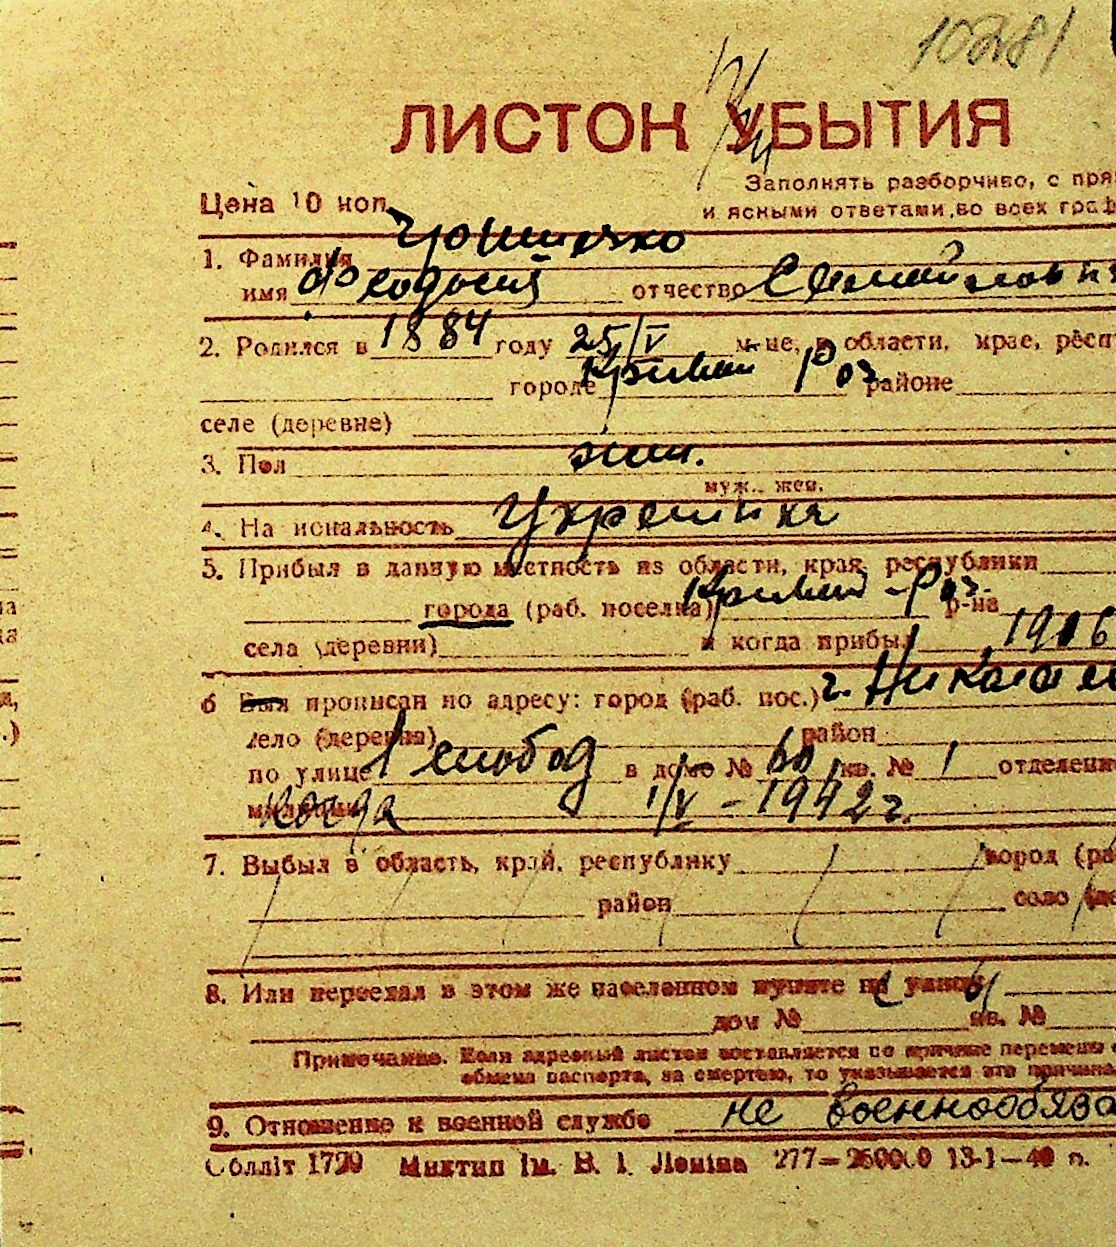 10281
ЛИСТОК УБЫТИЯ
Заполнять разборчиво, с пря
Цена 10 коп.
и ясными ответами, во всех граф
1. Фамилия
имя Феодосия отчество
2. Родился в 1884 году 25/V м-це, в области, крае, респ
городе Кривий Рог районе
селе (деревне)
3. Пол жен.
муж., жен.
4. Национальность Украинка
5. Прибыл в данную местность из области, края, республики
города (раб. поселка) Кривий-Рог р-на
села (деревни) и когда прибыл 1916
6 Был прописан по адресу: город (раб. пос.) г. Николаев
село (деревня) район
по улице 1 слобод в доме № 60 кв. № 1 отделение
милиции когда 1/V – 1942 г.
7. Выбыл в область, край, республику город (ра
район село (де
8. Или переехал в этом же населенном пункте на улицу
дом № кв. №
Примечание. Если адресный листок составляется по причине перемены
обмена паспорта, за смертью, то указывается эта причина.
9. Отношение к военной службе не военнообяза
Обллiт 1729 Миктип iм. В. I. Ленiна 277—260000 13-1—40 п.